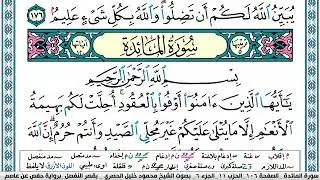 يُبَيِّنُ ٱللَّهُ لَكُمْ أَن تَضِلُّوا۟ وَٱللَّهُ بِكُلِّ شَىْءٍ عَلِيمٌۢ ١٧٦
سُورَةُ المَائِدَةِ
بِسْمِ ٱللَّهِ ٱلرَّحْمَٰنِ ٱلرَّحِيمِ
يَٰٓأَيُّهَا ٱلَّذِينَ ءَامَنُوٓا۟ أَوْفُوا۟ بِٱلْعُقُودِ أُحِلَّتْ لَكُم بَهِيمَةُ
ٱلْأَنْعَٰمِ إِلَّا مَا يُتْلَىٰ عَلَيْكُمْ غَيْرَ مُحِلِّى ٱلصَّيْدِ وَأَنتُمْ حُرُمٌ إِنَّ ٱللَّهَ
سورة المائدة صفحة ١٠٦ الحزب ١١ الجزء ٦ بصوت الشيخ محمود خليل الحصري بقصر المنفصل برواية حفص عن عاصم